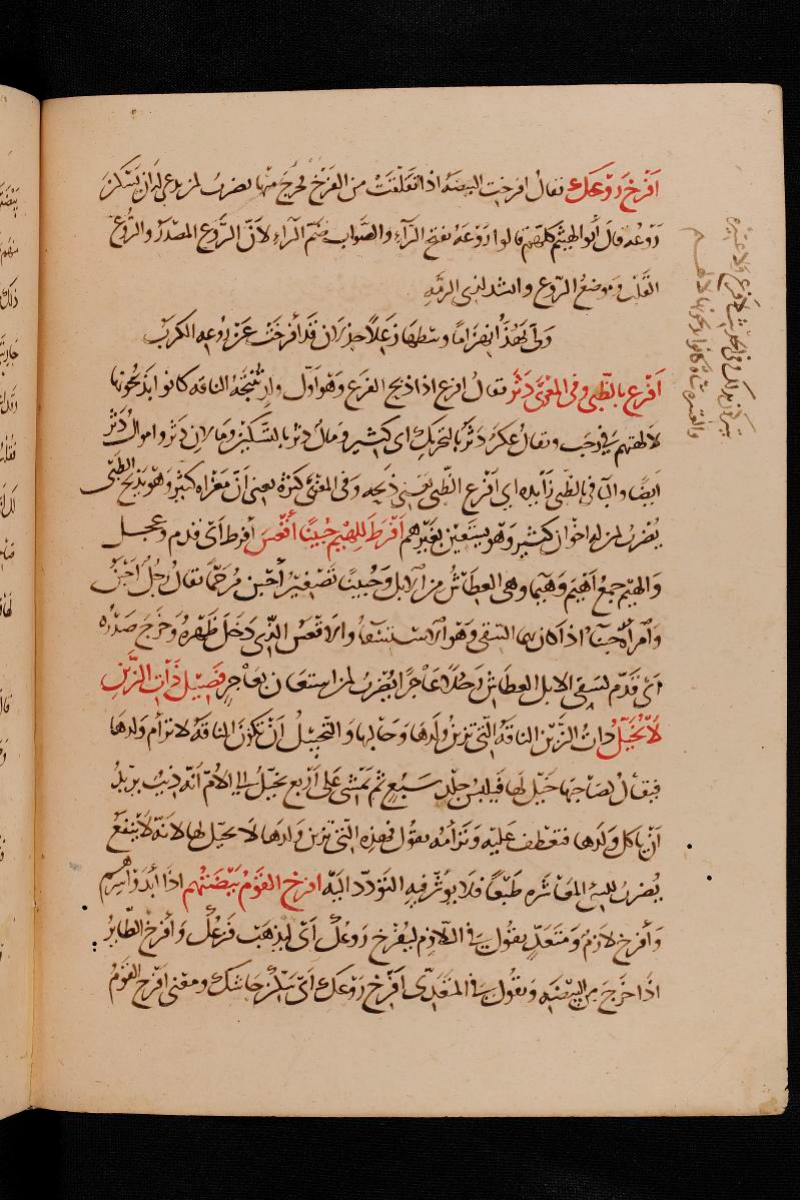 افرخ روعك يقال افرخت البيضة اذا انفلقت من الفرخ فخرج منها يضرب لمن يدعى له ان يسكن
روعه قال أبو الهيثم كلهم قالوا روعه بفتح الراء والصواب ضم الراء لان الروع المصدر والروع
القلب وموضع الروع وانشد لذي الرمة
ولى يهذ انهزاما وسطها زعلا جذلان قد أفرخت عن روعه الكرب
افرع بالظبي وفي المعزى دثر يقال افرع اذا ذبح الفرع وهو اول ولد تنتجه الناقة كانوا يذبحونها
لالهتهم في رجب ويقال عكر دثر بالتحريك اي كثير ومال دثر بالتسكين ومالان دثر واموال دثر
ايضا والباء في بالظبي زايده اي افرع الظبي يعني ذبحه وفي المعزى كثرة يعني ان معزاه كثير وهو يذبح الظبي
يضرب لمن له اخوان كثير وهو يستعين بغيرهم افرط للهيم حبينا أقعس أفرط أي قدم وعجل
والهيم جمع اهيم وهيما وهي العطاش من الابل وحبينا تصغير أحبن مرخما يقال رجل احبن
وامرأة حبنا اذا كان بهما السقى وهو الاستسقا والاقعس الذي دخل ظهره وخرج صدره
اي قدم لسقى الابل العطاش رجلا عاجزا يضرب لمن استعان بعاجز فصيل ذات الزبن
لا يخيل ذات الزبن الناقة التي تزبن ولدها وحالبها والتخييل ان تكون الناقة لا ترأم ولدها
فيقال لصاحبها خيل لها فيلبس جلد سبع ثم يمشي على أربع يخيل الى الام انه ذيب يريد
ان ياكل ولدها فتعطف عليه وترأمه يقول فهذه التي تزبن ولدها لا يخيل لها لانه لا ينفع
يضرب للسيئ المعاشرة طبعا فلا يوثر فيه التودد اليه افرخ القوم بيضتهم اذا أبدوا سرهم
وأفرخ لازم ومتعد يقول في اللازم ليفرخ روعك اي ليذهب فزعك وأفرخ الطاير
اذا خرج من البيضة ويقول في المتعدى افرخ روعك اي سكن جاشك ومعنى افرخ القوم